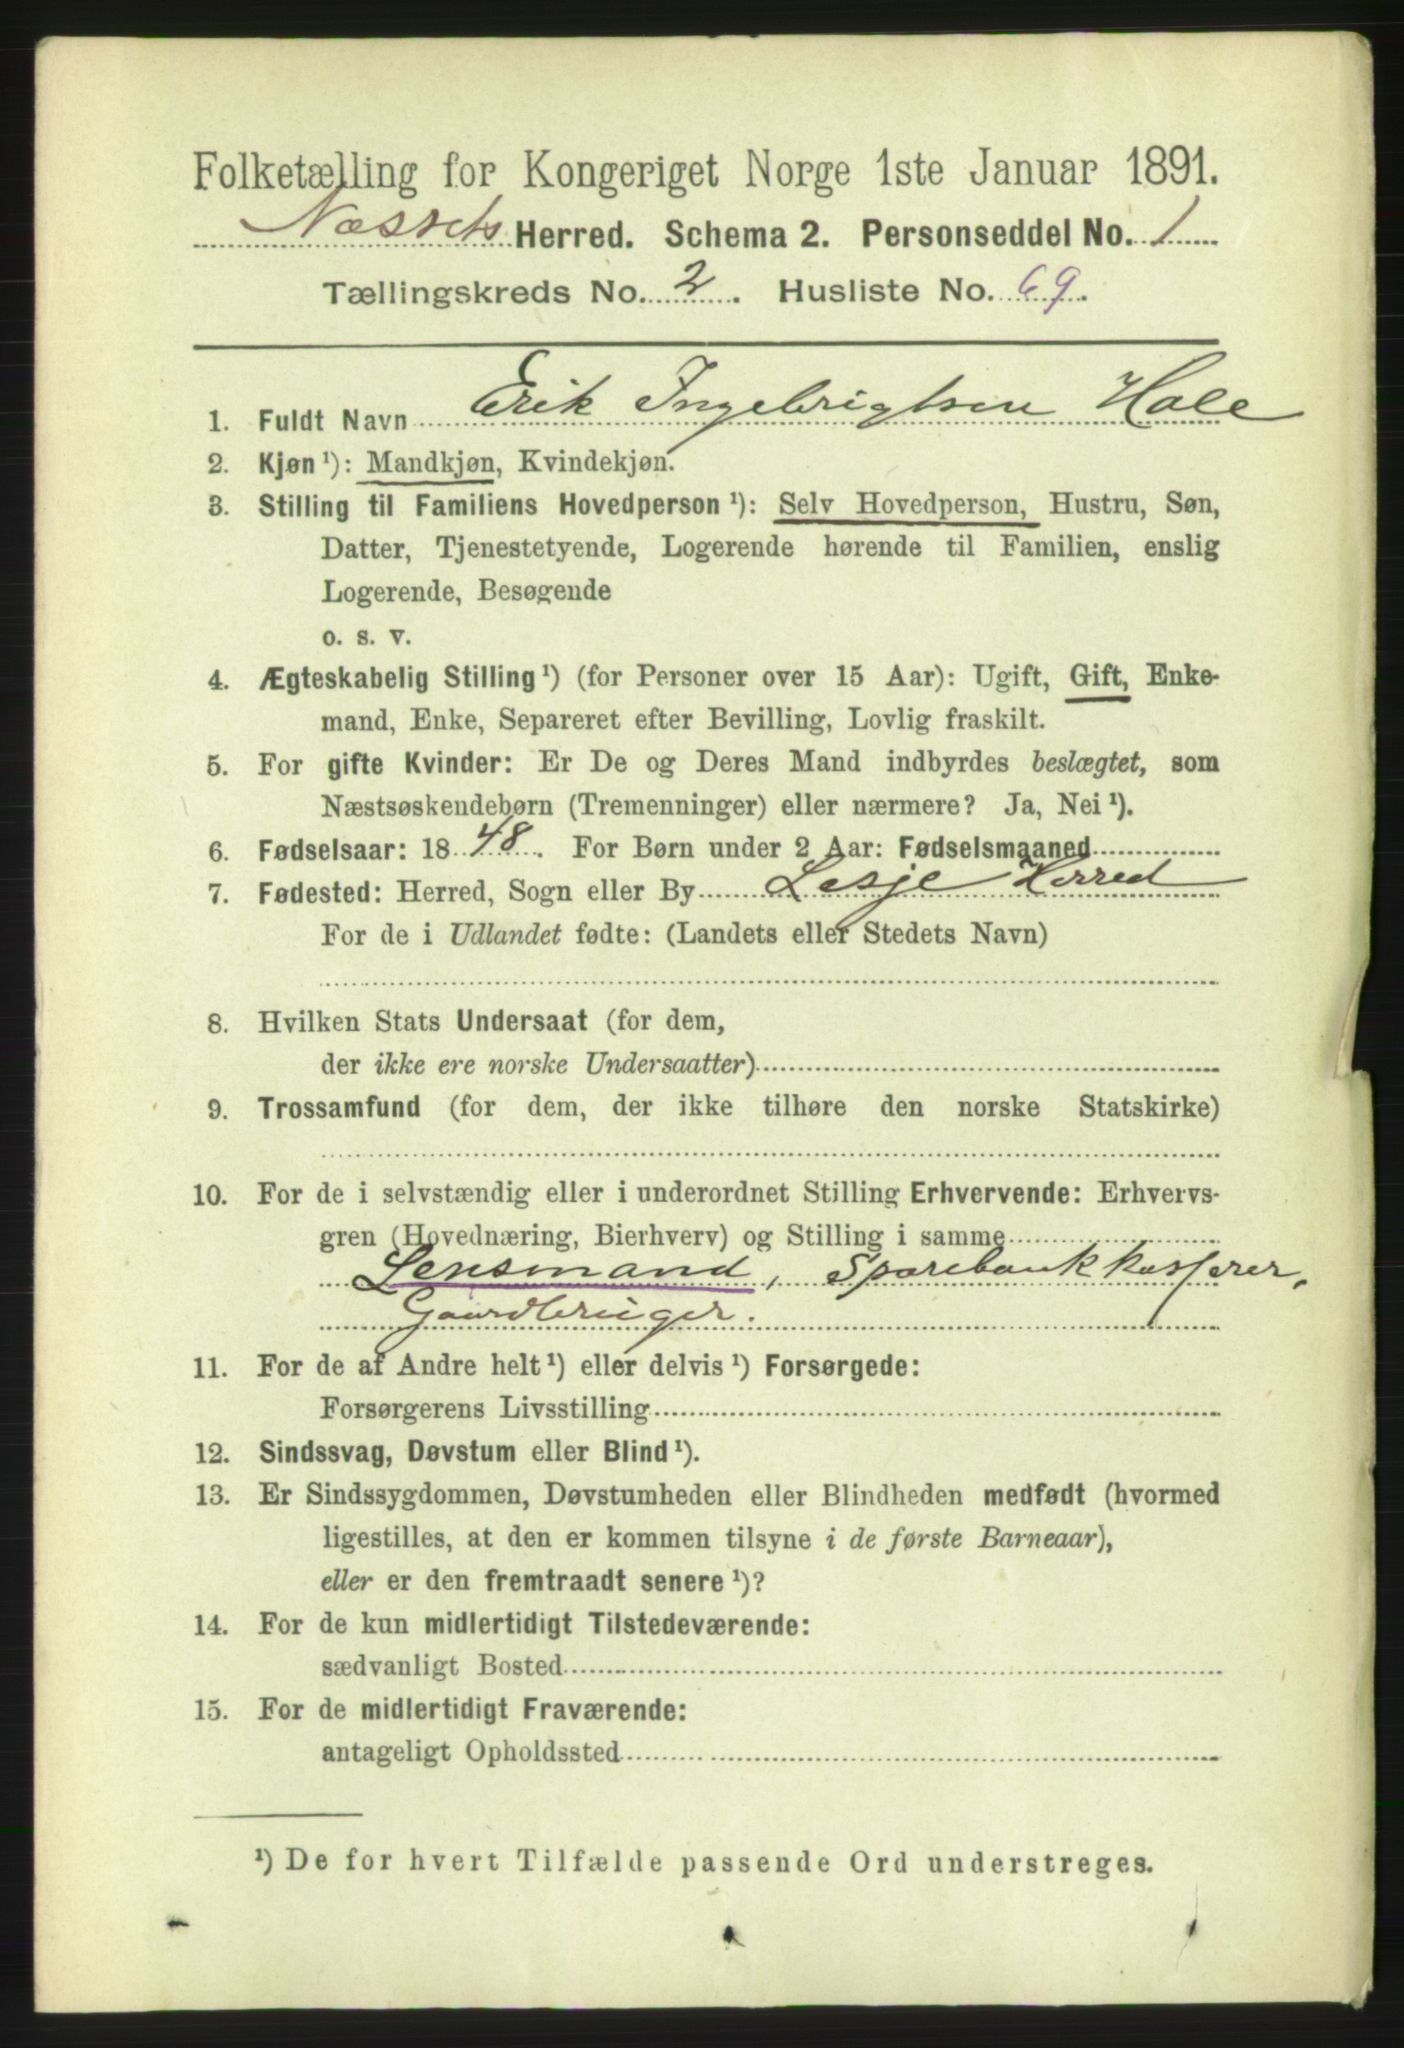 Folketælling for Kongeriget Norge 1ste Januar 1891.
Næssets Herred. Schema 2. Personseddel No. 1
Tællingskreds No. 2. Husliste No. 69.
1. Fuldt Navn Erik Ingebrigtsen Hole
2. Kjøn ¹): Mandkjøn, Kvindekjøn.
3. Stilling til Familiens Hovedperson ¹): Selv Hovedperson, Hustru, Søn,
Datter, Tjenestetyende, Logerende hørende til Familien, enslig
Logerende, Besøgende
o. s. v.
4. Ægteskabelig Stilling ¹) (for Personer over 15 Aar): Ugift, Gift, Enke-
mand, Enke, Separeret efter Bevilling, Lovlig fraskilt.
5. For gifte Kvinder: Er De og Deres Mand indbyrdes beslægtet, som
Næstsøskendebørn (Tremenninger) eller nærmere? Ja, Nei ¹).
6. Fødselsaar: 1848. For Børn under 2 Aar: Fødselsmaaned
7. Fødested: Herred, Sogn eller By Lesje Herred
For de i Udlandet fødte: (Landets eller Stedets Navn)
8. Hvilken Stats Undersaat (for dem,
der ikke ere norske Undersaatter)
9. Trossamfund (for dem, der ikke tilhøre den norske Statskirke)
10. For de i selvstændig eller i underordnet Stilling Erhvervende: Erhvervs-
gren (Hovednæring, Bierhverv) og Stilling i samme
Lensmand, Sparebankkasserer,
Gaardbruger.
11. For de af Andre helt ¹) eller delvis ¹) Forsørgede:
Forsørgerens Livsstilling
12. Sindssvag, Døvstum eller Blind ¹).
13. Er Sindssygdommen, Døvstumheden eller Blindheden medfødt (hvormed
ligestilles, at den er kommen tilsyne i de første Barneaar),
eller er den fremtraadt senere ¹)?
14. For de kun midlertidigt Tilstedeværende:
sædvanligt Bosted
15. For de midlertidigt Fraværende:
antageligt Opholdssted
¹) De for hvert Tilfælde passende Ord understreges.